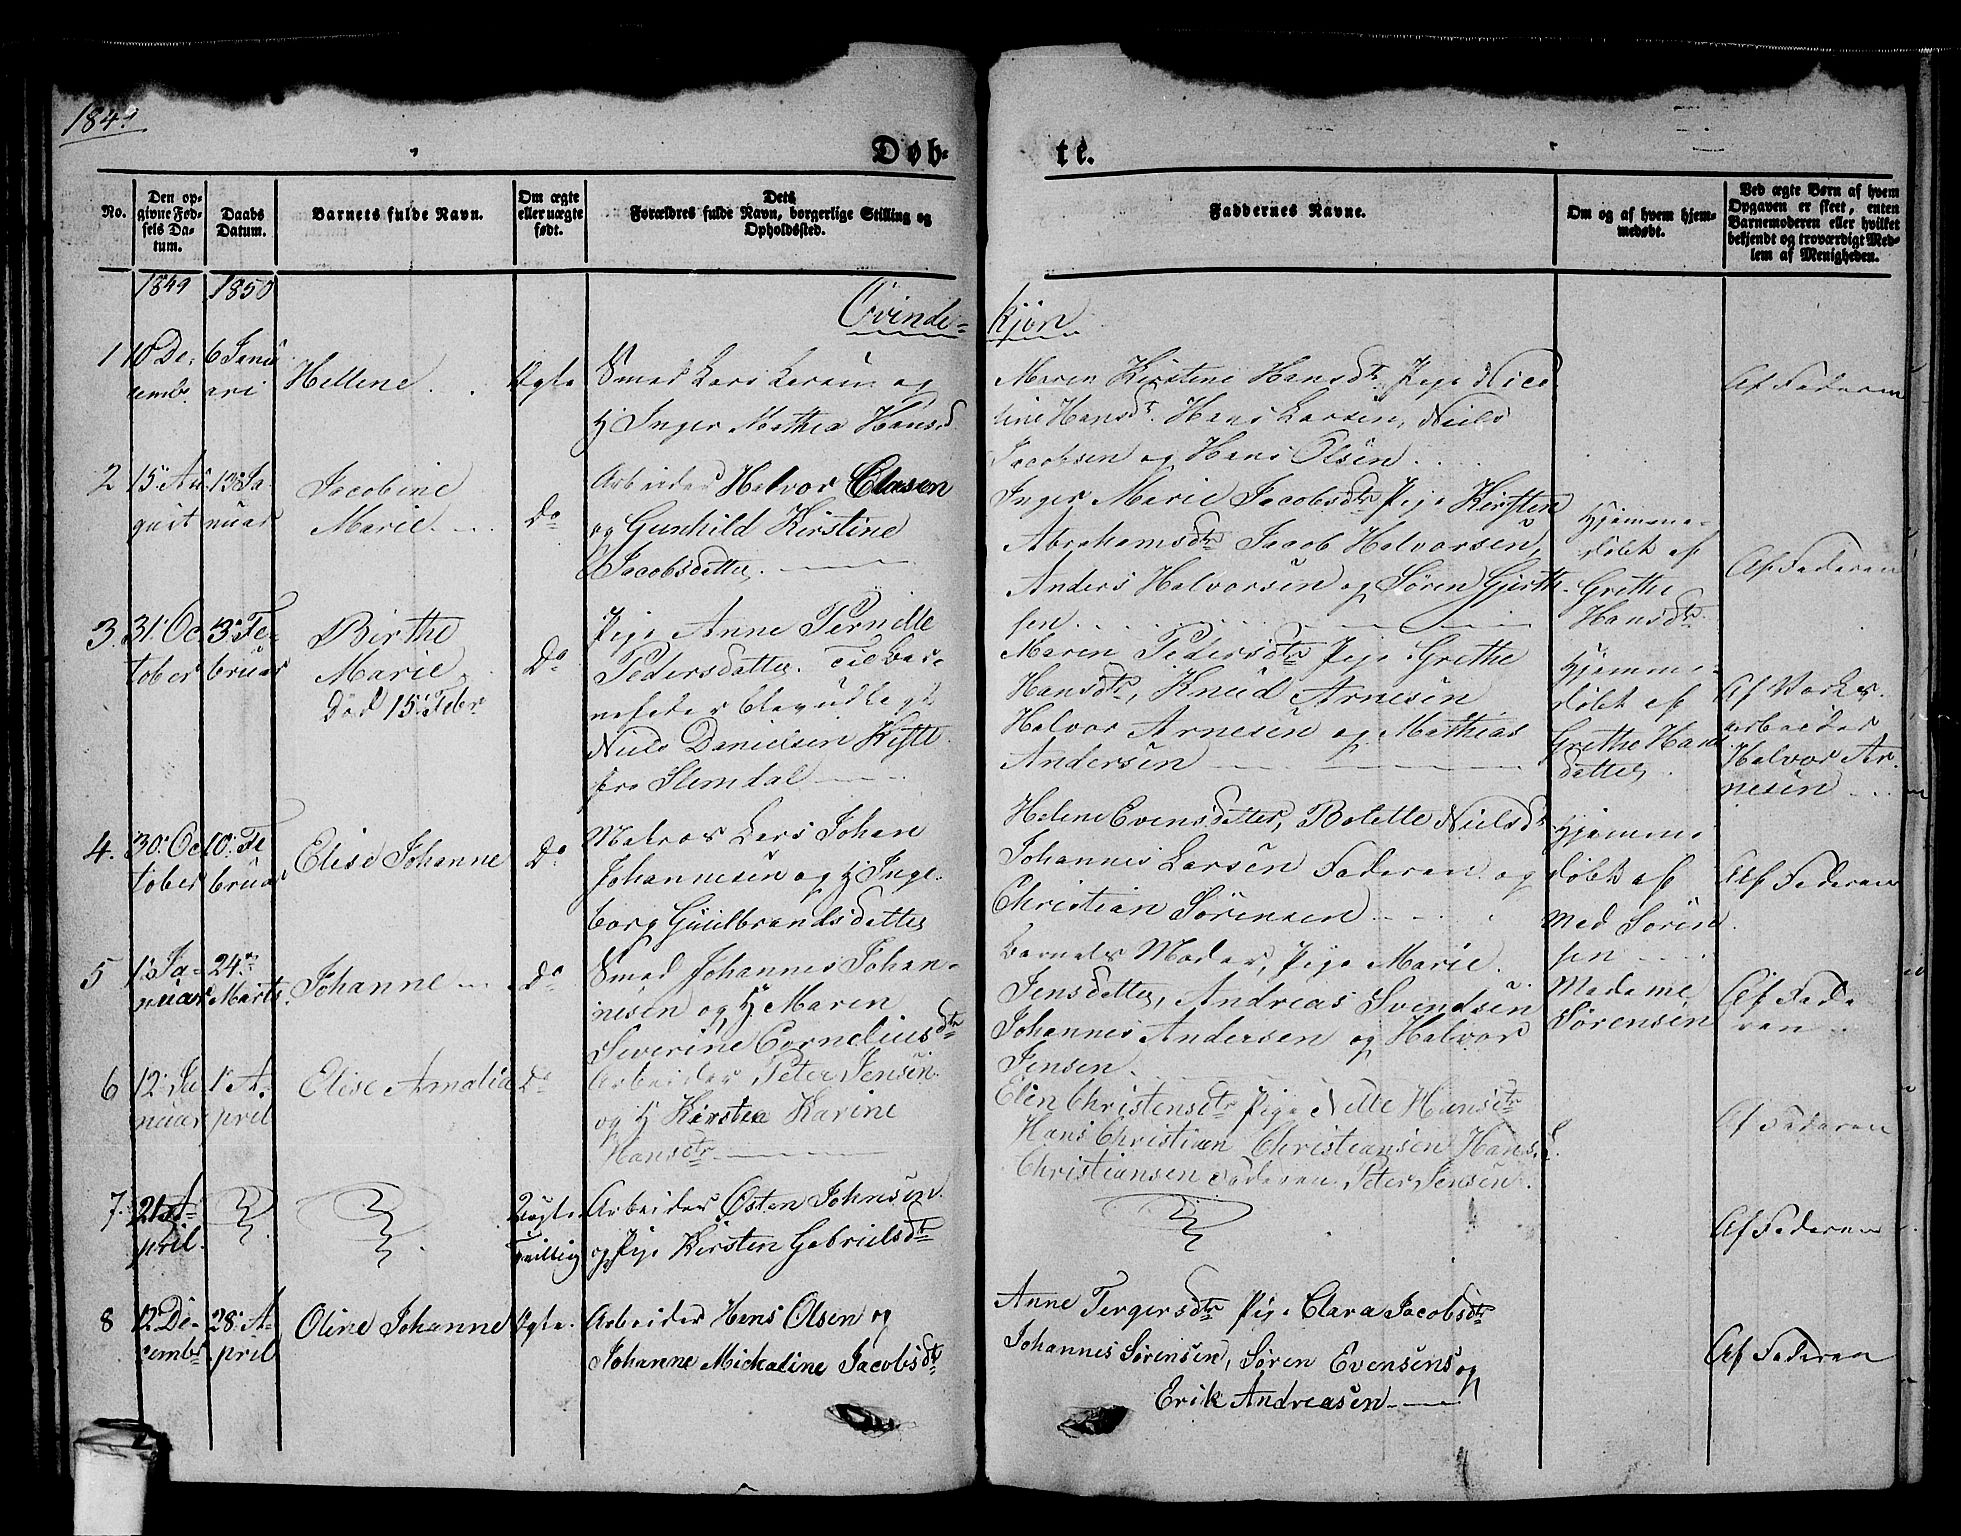 1849
Døb-
te.
No.
Den op-
givne Fød-
sels Da-
tum.
Daabs
Datum.
Barnets fulde Navn.
Om ægte
eller uægte
født.
Dets
Forældres fulde Navn, borgerlige Stilling og
Opholdssted.
Faddernes Navne.
Om og af hvem hjem-
medøbt.
Ved ægte Børn af hvem
Opgaven er skeet, enten
Barnemoderen eller hvilket
bekjendt og troværdigt Med-
lem af Menigheden.
1849
1850
Qvinde-
kjøn
1
10 De-
cembr
6 Janu
ari
Hellene.
Ægte
Smed Lars Larsen og
H Inger Mathea Hansd
Maren Kirstine Hansdtr Pige Nico
line Hansdtr. Hans Larsen, Niels
Jacobsen og Hans Olsen
Af Faderen
2
15 Au
gust
13 Ja
nuar
Jacobine
Marie.
Do
Arbeider Halvor Clasen
og Gunhild Kirstine
Jacobsdatter.
Inger Marie Jacobsdtr Pige Kirsten
Abrahamsdtr Jacob Halvorsen,
Anders Halvorsen og Søren Gjerth-
sen
Hjemme-
døbt af
Grethe
Hansdtr
Af Faderen
3.
31. Oc
tober
3. Fe-
bruar
Birthe
Marie
Død 15 Febr
Do
Pige Anne Pernille
Pedersdatter. Til Bar-
nefader blev udlagt
Niels Danielsen
fra Slemdal
Maren Pedersdtr Pige Grethe
Hansdtr, Knud Arnesen
Halvor Arnesen og Mathias
Andersen
Hjemme-
døbt af
Grethe Hans
datter
Af Værks-
arbeider
Halvor Ar-
nesen
4.
30. Oc
tober
10. Fe
bruar
Elise Johanne
Do
Matros Lars Johan
Johannesen og H Inge-
borg Gulbrandsdatter
Helene Evensdatter, Bolette Nielsdr
Johannes Larsen Faderen og
Christian Sørensen
Hjemme
døbt af
Mad Søren
sen
Af Faderen
5
1 Ja-
nuar
24.
Marts.
Johanne
Do
Smed Johannes Johan-
nesen og H Maren
Severine Corneliusdtr
Barnets Moder, Pige Marie
Jensdatter, Andreas Svendsen
Johannes Andersen og Halvor
Jensen
Madame
Sørensen
Af Fade
ren
6
12 Ja
nuar
1 A-
pril
Elise Amalia
Do
Arbeider Peter Jensen
og H Kirstea Karine
Hansdtr
Elen Christensdtr Pige Nelle Hansdtr
Hans Christian Christiansen Hans
Christiansen Faderen Peter Jensen.
Af Faderen
7.
21 A-
pril.
Uægte
Tvilling
Arbeider Østen Johnsen
og Pige Kirsten Gabrielsdtr
Af Faderen
8
12 De-
cembr
28. A-
pril
Oline Johanne
Ægte.
Arbeider Hans Olsen og
Johanne Michaline Jacobsdtr
Anne Tergersdtr Pige Clara Jacobsdtr
Johannes Sørensen, Søren Evensens og
Erik Andreasen
Af Faderen